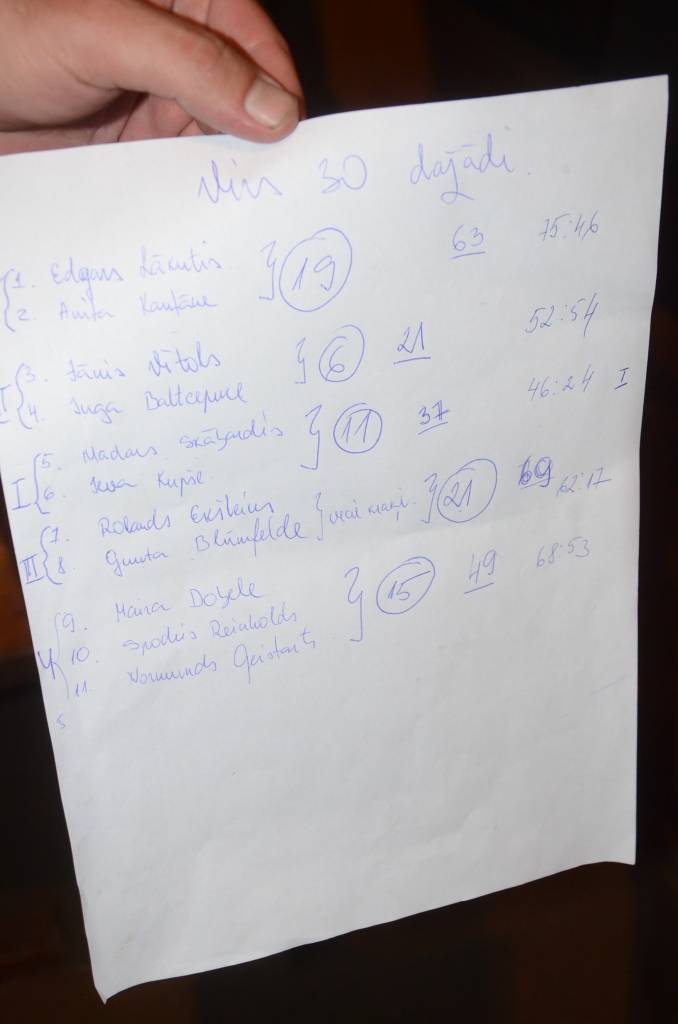 Virs 30 dažādi.
1. Edgars Lākutis } 19 63 75:46
2. Anita Kantāne
3. Jānis Vītols } 6 21 52:54
I 4. Inga Baltcepure
I 5. Madars Skāžardis } 11 37 46:24 I
6. Ieva Kupše
7. Rolands Eksteins } 21 69 62:17
III 8. Gunta Blūmfelde
9. Maira Dobele } 15 49 68:53
10. Spodris Reinholds
11. Normunds
5